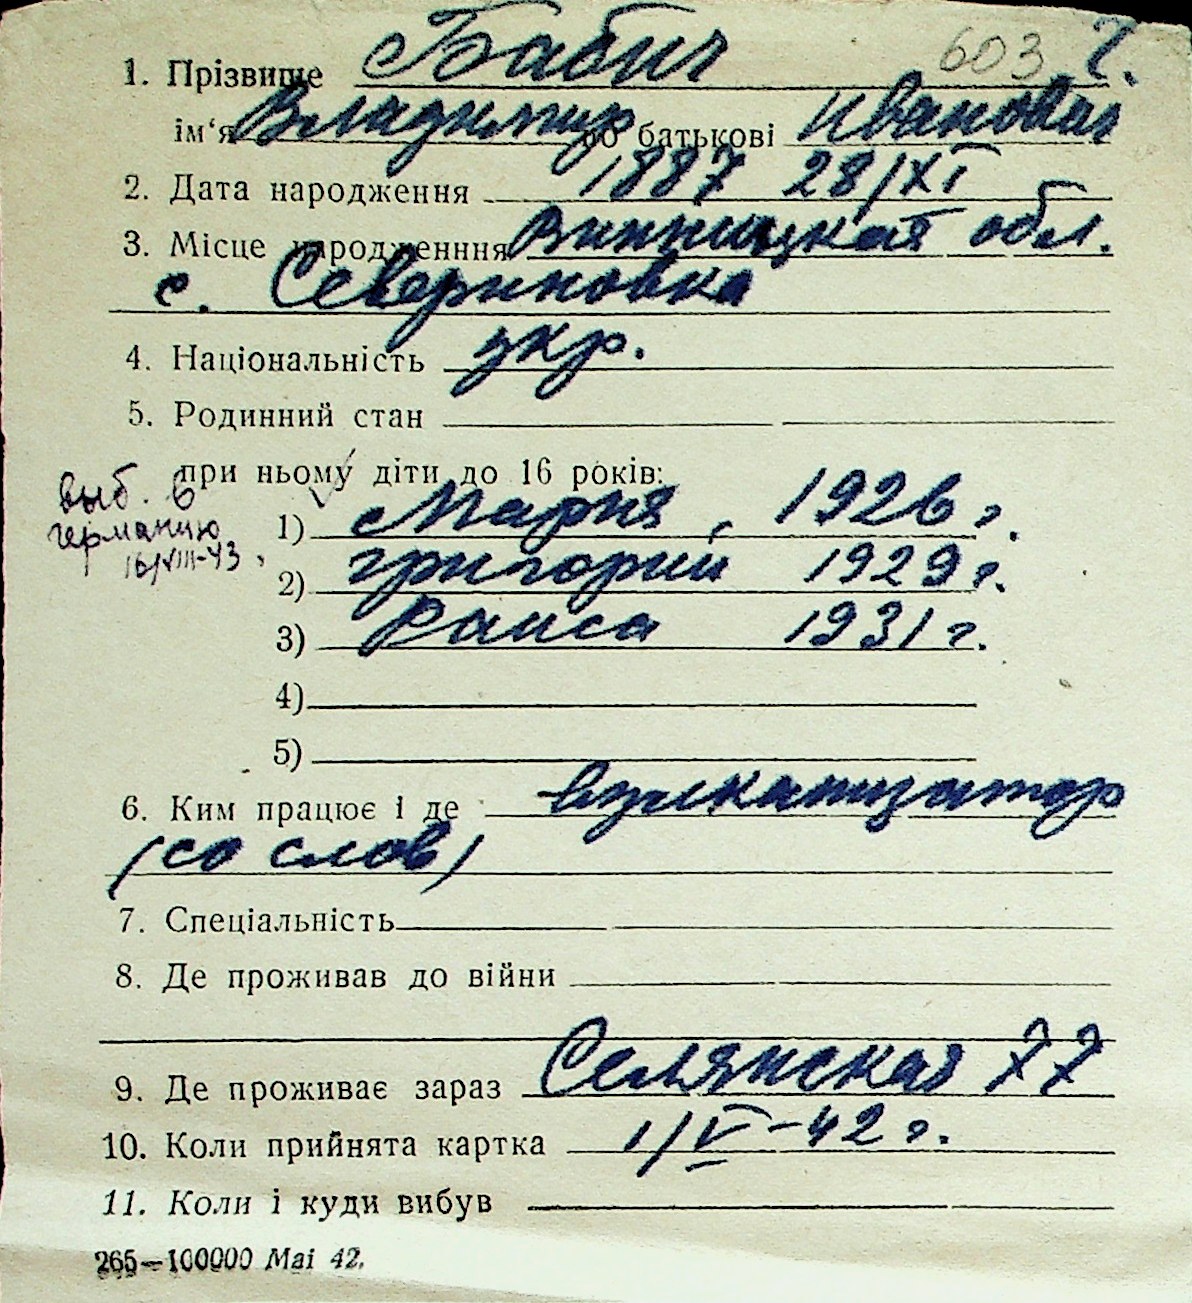 603 г.
1. Прізвище Бабич
ім'я Владимир по батькові Иванович
2. Дата народження 1887 28/XI
3. Місце народженння Винницкая обл.
с. Севериновка
4. Національність укр.
5. Родинний стан
при ньому діти до 16 років:
выб. в
германию
16/VIII-43.
1) Мария, 1926 г.
2) григорий 1929 г.
3) Раиса 1931 г.
4)
5)
6. Ким працює і де
(со слов)
7. Спеціальність
8. Де проживав до війни
9. Де проживає зараз Селянская 77
10. Коли прийнята картка 1/V-42 г.
11. Коли і куди вибув
265—100000 Mai 42.